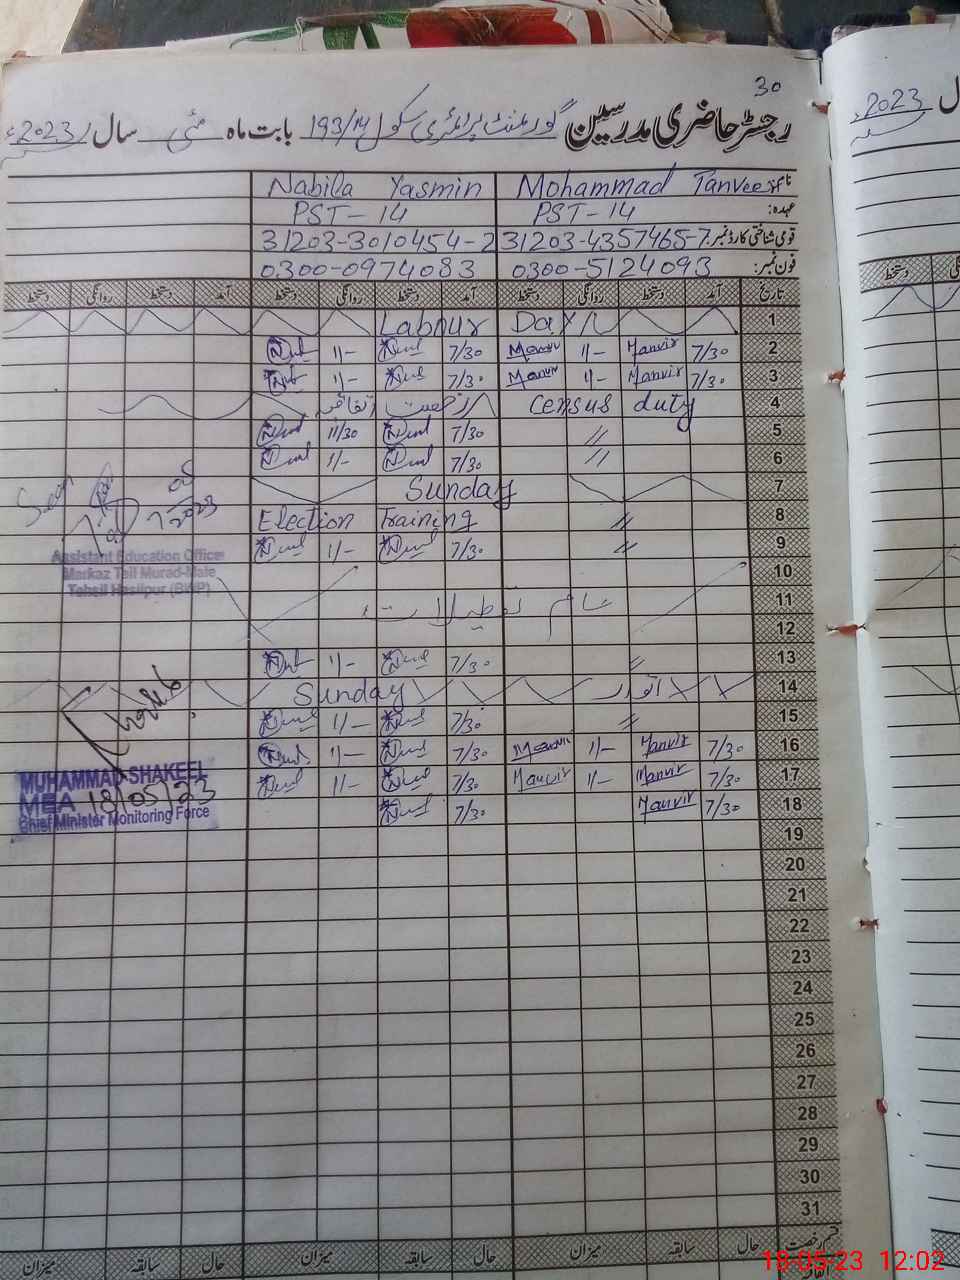 30
رجسٹر حاضری مدرسین گورنمنٹ پرائمری سکول 193/M بابت ماہ مئی سال 2023ء
نام: Mohammad Tanveer Nabila Yasmin
عہدہ: PST-14 PST-14
قومی شناختی کارڈ نمبر: 31203-4357465-7 31203-3010454-2
فون نمبر: 0300-5124093 0300-0974083
تاریخ آمد دستخط روانگی دستخط آمد دستخط روانگی دستخط آمد دستخط روانگی دستخط
1 Labour Day
2 7/30 Tanvir 1/- 7/30 1/-
3 7/30 Tanvir 1/- 7/30 1/-
4 Census duty رخصت اتفاقیہ
5 〃 7/30 11/30
6 〃 7/30 1/-
7 Sunday
8 〃 Election Training
9 〃 7/30 1/-
10
11 عام تعطیلات
12
13 〃 7/30 1/-
14 اتوار Sunday
15 〃 7/30 1/-
16 7/30 Tanvir 1/- 7/30 1/-
17 7/30 Tanvir 1/- Tanvir 7/30 1/-
18 7/30 Tanvir 7/30
19
20
21
22
23
24
25
26
27
28
29
30
31
قسم رخصت حال سابقہ میزان حال سابقہ میزان حال سابقہ میزان
Seen
05
2023
Assistant Education Officer
Markaz Tail Murad-Male
Tehsil Hasilpur (BWP)
MUHAMMAD SHAKEEL
MEA 18/05/23
Chief Minister Monitoring Force
2023
دستخط
18-05-23 12:02